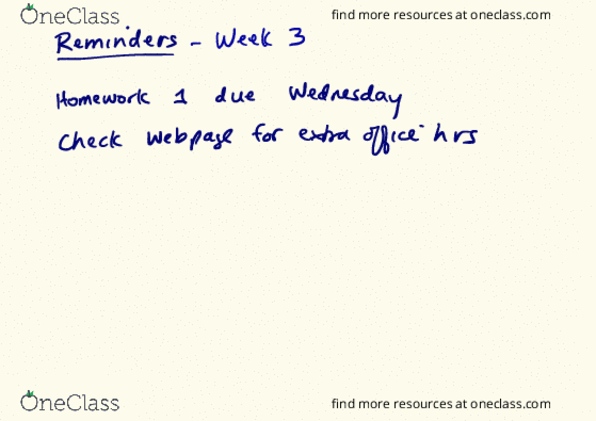 OneClass find more resources at oneclass.com
Reminders - Week 3
Homework 1 due Wednesday
Check webpage for extra office hrs
OneClass find more resources at oneclass.com